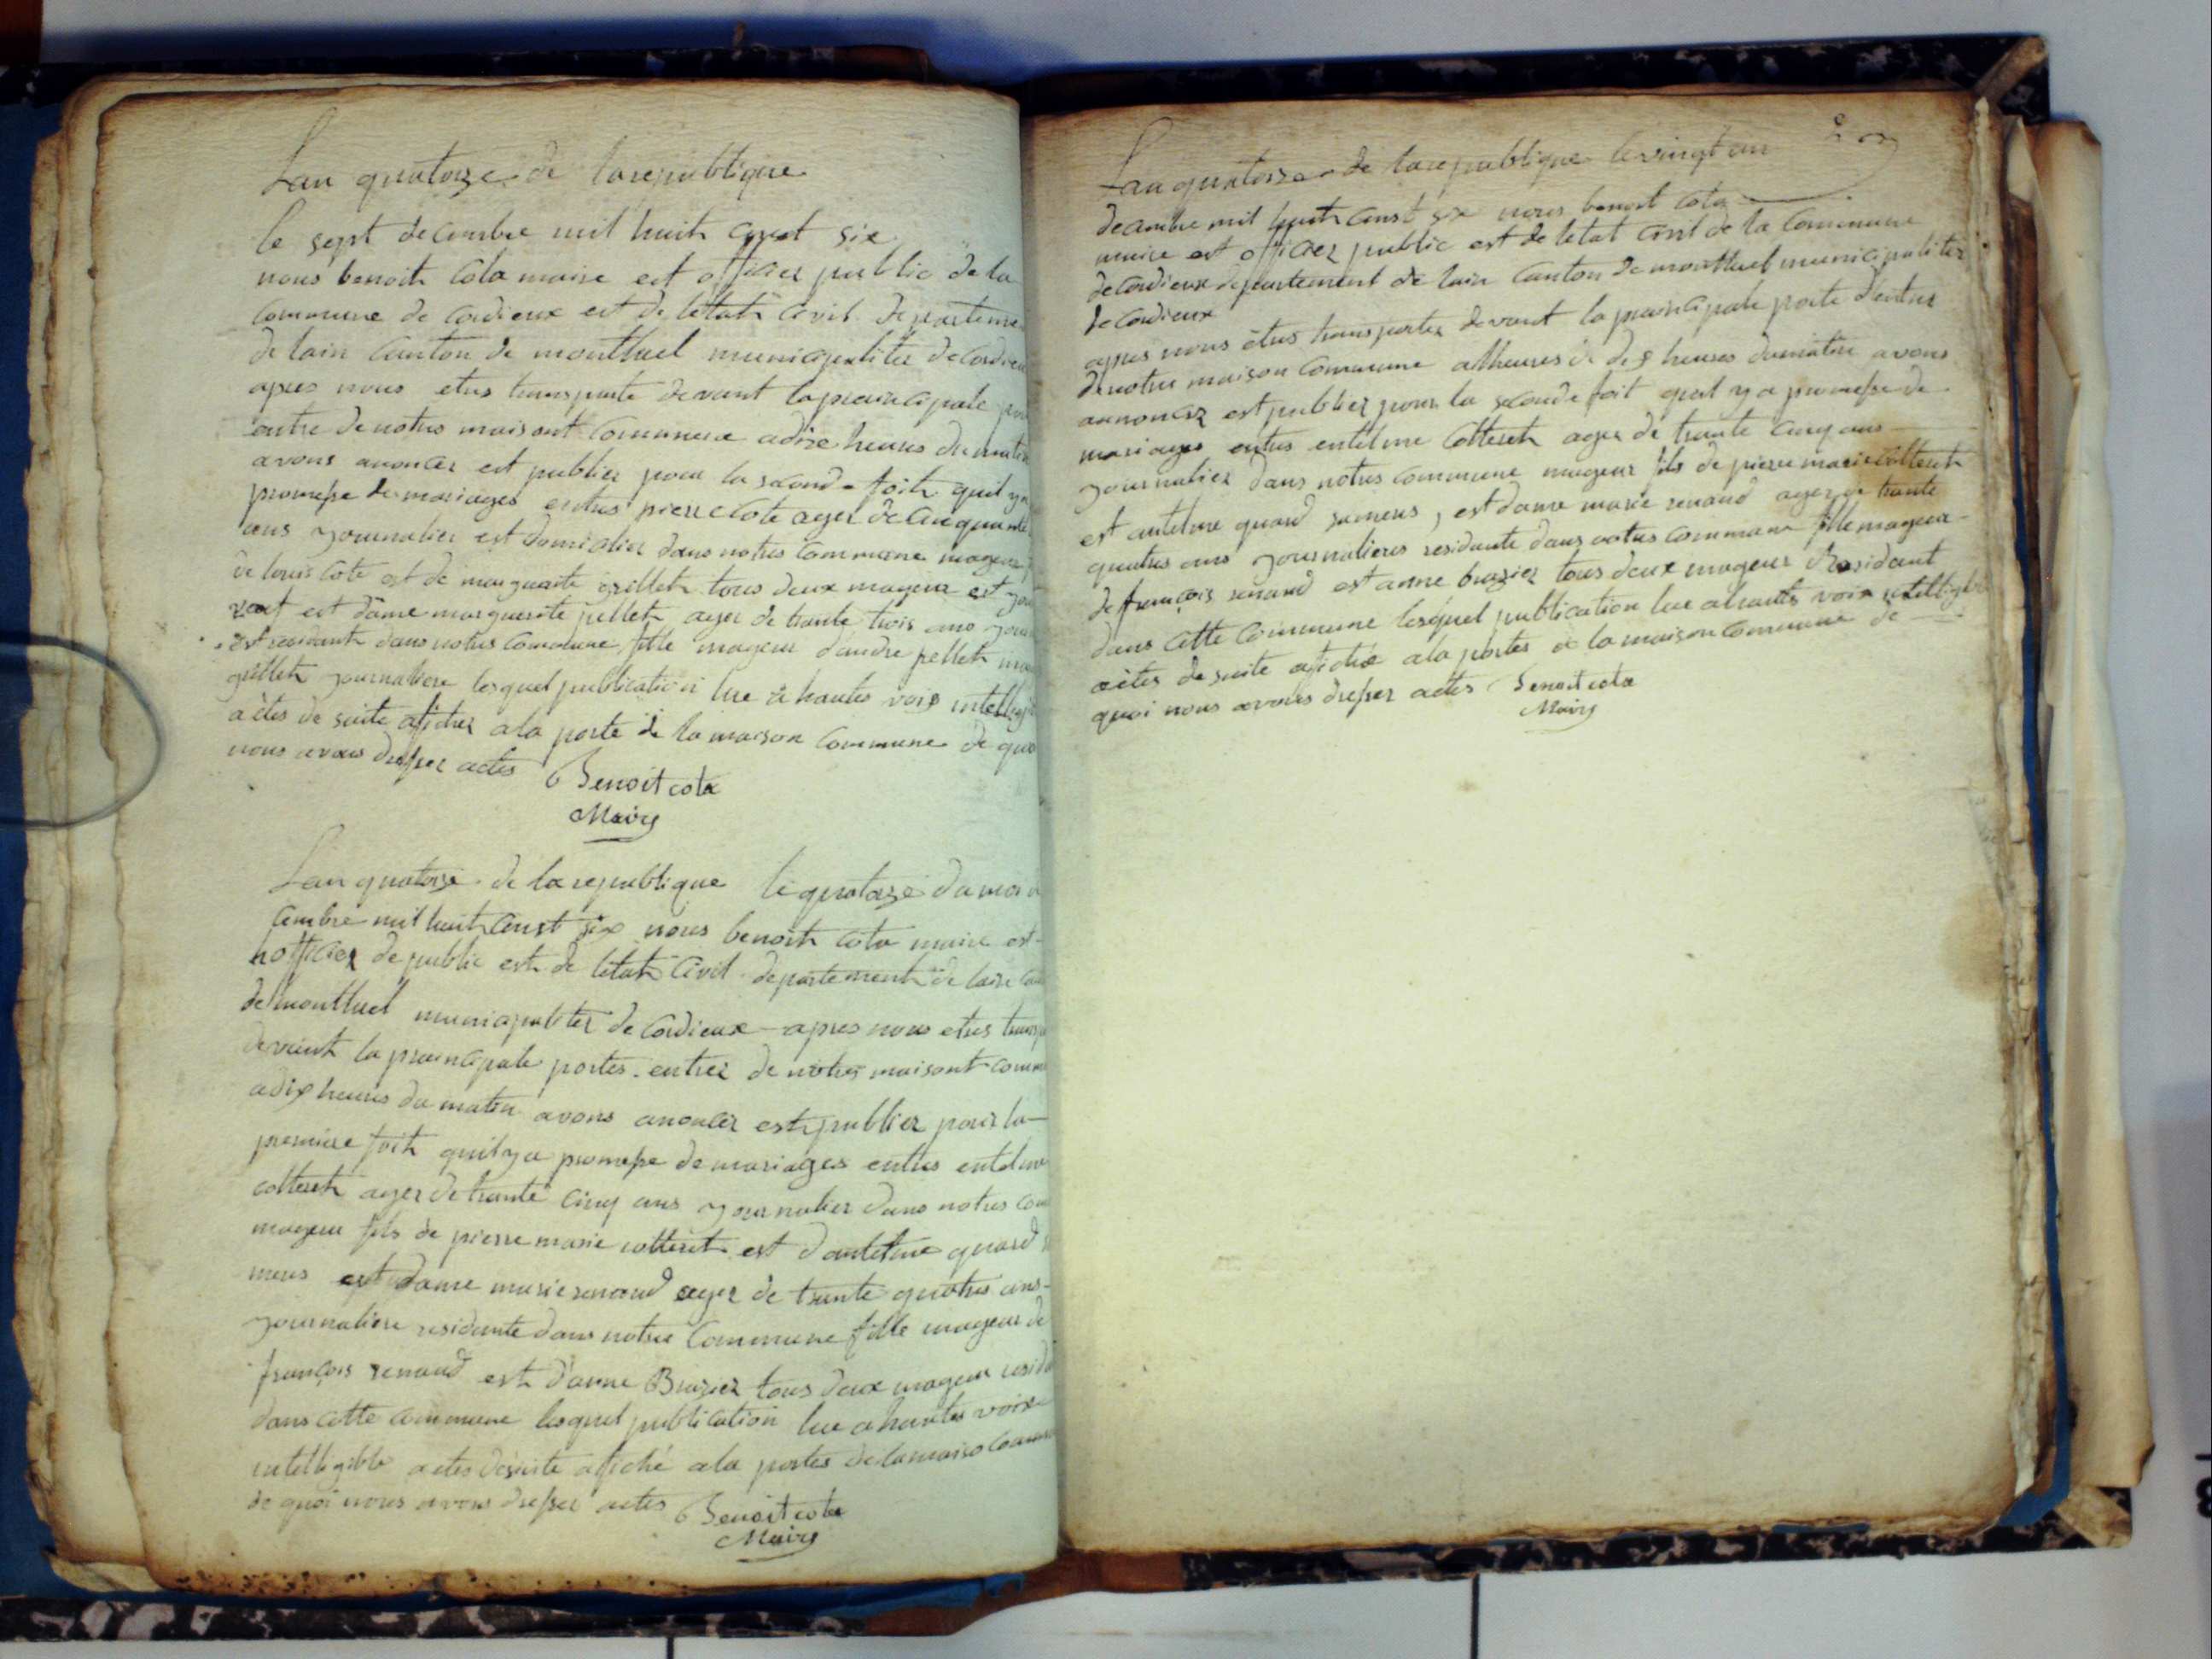 Lan quatorze de larepublique
le sept decembre mil huit cent six
nous benoith Cola maire est officier public de la
Commune de Cordieux est de letath Civil departeme
de lain Canton de montluel municipaliter de Cordieu
apres nous etus transporte devant laprincipale por
entre de notres maisont Commune adixe heures du matin
avons anoncer est publier pour la seconde foith quil ya
promesse de mariages entres pierre Cote ager de Cinquante
ans journalier est domicilier dans notres Commune mageur
de louis Cote est de marguerite grillet tous deux mageur est
est dame marguerite pellet ager de trante trois ans jour
est residante dans notres Commune fille mageur dandre pellet
journaliere lesquel publication lue a hautes voix intelligi
actes de suite aficher a la porte de la maison Commune de quoi
nous avons dresser actes Benoit cola
Maire
Lan quatorze de la republique le quatorze du mois
cembre mil huit Censt six nous benoith Cola maire est
hofficier de public est de letath Civil departementh de lain Can
de montluel municipaliter de Cordieux apres nous etus transp
devanth la principale portes entrer de notres maisont comm
adix heures du matin avons anoncer est publier pour la
premiere foith quil ya promesse de mariages entres entelme
cottereth ager de trante Cinq ans journalier dans notres com
mageur fils de pierre marie cottereth est dantelme quard
mens est dame marie renaud ager de trante quatres ans
journaliere residante dans notre Commune fille mageur de
françois renaud est danne Brazier tous deux mageur resida
dans Cette Commune lesquel publication lue a hautes voix
intelligible actes desuite afiché a la portes de la maiso Comm
de quoi nous avons dresser actes Benoit cola
Maire
Lan quatorze de larepublique le vingt un
decembre mil huit Censt six nous benoit Cola
maire est officier public est de letat Civil de la Commune
de Cordieux departement de lain Canton de montluel municipaliter
de Cordieux
apres nous etus transporter devant la principale porte dentre
de notres maison Commune alheures de dix heures du matin avons
annoncer est publier pour la seconde foit quil y a promesse de
mariages entres entelme Cottereth ager de trante Cinq ans
journalier dans notres Commune mageur fils de pierre marie Cottereth
est antelme quard sumens, est dame marie renaud ager de trante
quatres ans journalieres residante dans notres Commune fille mageur
de françois renaud est anne brazier tous deux mageur Residant
dans Cette Commune lesquel publication lue ahautes voix intelligible
actes de suite afiche a la portes de la maison Commune de
quoi nous avons dresser actes Benoit cola
Maire